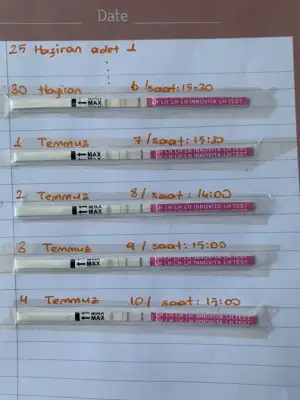 Date
25 Haziran adet 1
30 Haziran 6/saat:15:30
MAX LH LH LH INNOVITA LH TEST
1 Temmuz 7/saat:15:30
MAX LH LH LH INNOVITA LH TEST
2 Temmuz 8/saat:14:00
MAX LH LH LH INNOVITA LH TEST
3 Temmuz 9/saat:15:00
MAX LH LH LH INNOVITA LH TEST
4 Temmuz 10/saat:15:00
MAX LH LH LH INNOVITA LH TEST